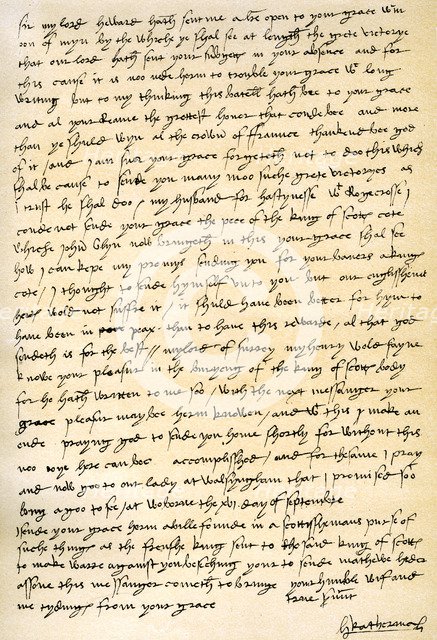 Sir my lord howard hath sent me a lre open to your grace wtin
oon of myn by the whiche ye shal see at length the grete victorye
that our lord hath sent your subgetts in your absence and for
this cause it is noo nede herin to trouble your grace wt long
writing but to my thinking this batell hath bee to your grace
and al your reame the grettest honor that coude bee and more
than ye shuld wyn al the crown of ffraunce thanked bee god
of it / and I am suer your grace forgeteth not to doo this which
shal be cause to sende you many moo suche grete victoryes as
I trust he shal doo / my husband for hastynesse wt Rogecrosse I
coude not sende your grace the pece of the king of scotts cote
whiche John Glyn now bringeth in this your grace shal see
how I can kepe my promys sending you for your baners a kings
cote / I thought to sende hymself vnto you but our englisshemens
herts wold not suffre it / it shuld have been better for hym to
have been in peax than to have this rewarde / al that god
sendeth is for the best // my lord of surrey my henry wold fayne
knowe your pleasur in the buryeng of the king of scotts body
for he hath writen to me soo / with the next messanger your
grace pleasur may bee herin knowen / and wt this I make an
ende praying god to sende you home shortly for without this
noo ioye here can bee accomplisshed / and for the same I pray
and now goo to our lady at walsingham that I promised soo
long agoo to see / at woborne the xvj day of septembre
I sende your grace herin a bille founde in a scottisshemans purse of
suche things as the frenshe king sent to the said king of scotts
to make warre against you beseching your to sende mathewe heder
assone this messanger cometh to bringe your humble wif and
me tydings from your grace true sernt
Katherina